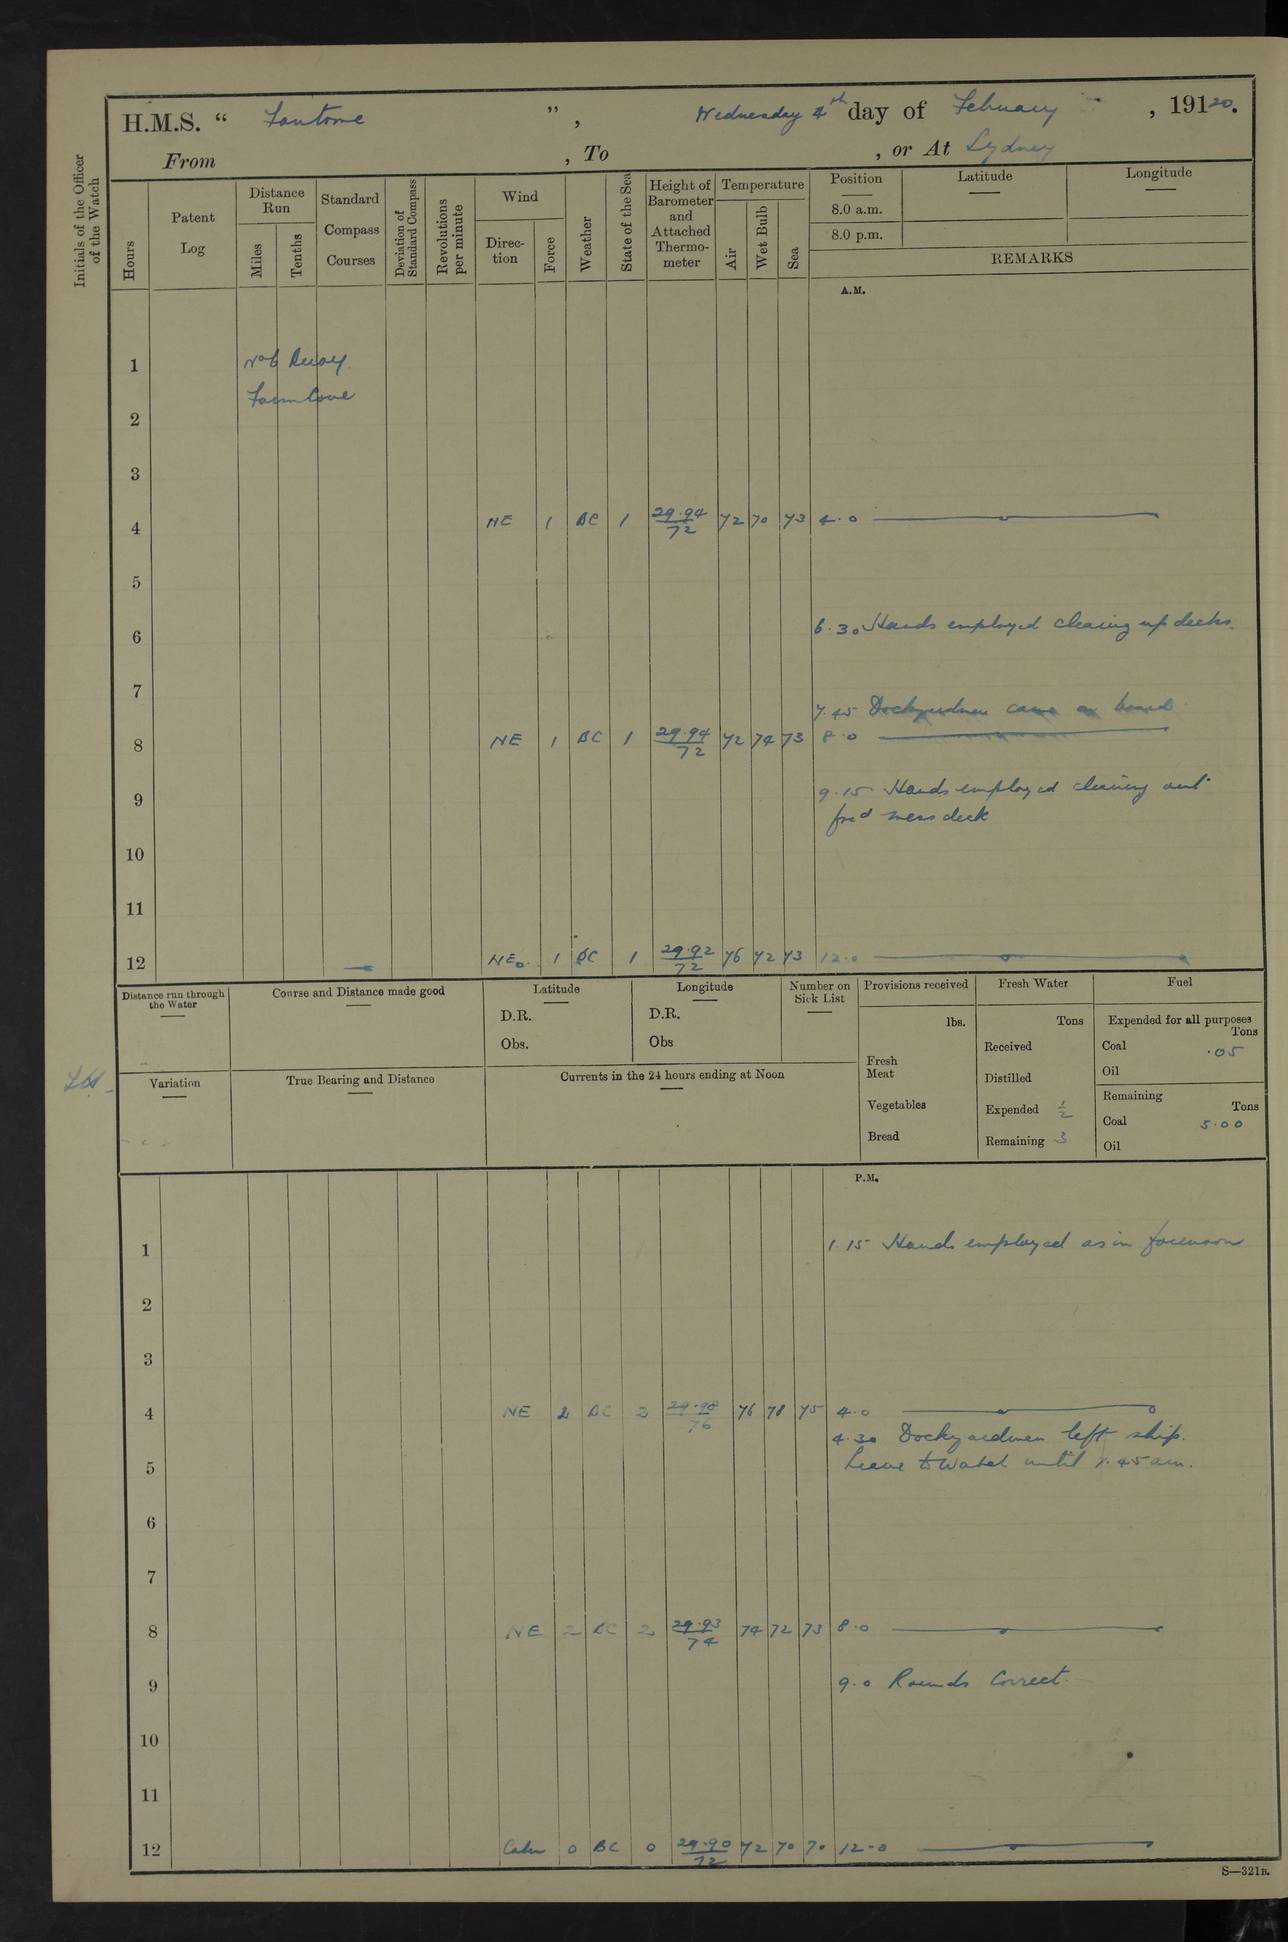 H.M.S. “ Fantome ”, Wednesday 4th day of February, 19120.
From , To , or At Sydney
Initials of the Officer of the Watch
Hours
Patent Log
Distance Run
Miles
Tenths
Standard Compass Courses
Deviation of Standard Compass
Revolutions per minute
Wind
Direc-tion
Force
Weather
State of the Sea
Height of Barometer and Attached Thermo-meter
Temperature
Air
Wet Bulb
Sea
Position
8.0 a.m.
8.0 p.m.
Latitude
Longitude
REMARKS
A.M.
1 No 6 Buoy
Farm Cove
2
3
4 NE 1 BC 1 29.94/72 72 70 73 4.0
5
6 6.30 Hands employed clearing up decks.
7
7.45 Dockyardmen came on board
8 NE 1 BC 1 29.94/72 72 74 73 8.0
9 9.15 Hands employed cleaning out
for'd mess deck
10
11
12 NE 1 BC 1 29.92/72 76 72 73 12.0
Distance run through the Water
Course and Distance made good
Latitude
D.R.
Obs.
Longitude
D.R.
Obs
Number on Sick List
Provisions received
lbs.
Fresh Meat
Vegetables
Bread
Fresh Water
Tons
Received
Distilled
Expended 1/2
Remaining 3
Fuel
Expended for all purposes
Tons
Coal .05
Oil
Remaining
Tons
Coal 5.00
Oil
Variation
True Bearing and Distance
Currents in the 24 hours ending at Noon
P.M.
1 1.15 Hands employed as in forenoon
2
3
4 NE 2 BC 2 29.98/76 76 78 75 4.0
4.30 Dockyardmen left ship.
5 Leave to Watch until 7.45 am.
6
7
8 NE 2 BC 2 29.93/74 74 72 73 8.0
9 9.0 Rounds Correct.
10
11
12 Calm 0 BC 0 29.90/72 72 70 70 12.0
S—321B.